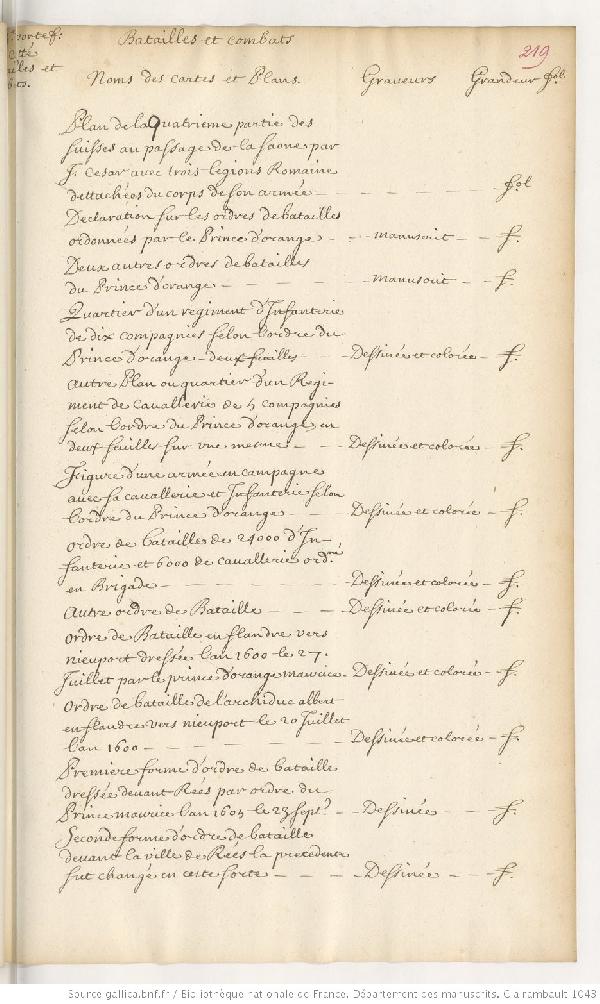 Batailles et combats
219
Noms des cartes et Plans. Graveurs Grandeur fol.
Plan de la Quatrieme partie des
suisses au passage de la saone par
J. Cesar avec trois legions Romaine
dettachéos du corps de son armée — fol
Declaration sur les ordres de batailles
ordonnées par le Prince d'orange — manuscrit — f.
Deux autres ordres de batailles
du Prince d'orange — manuscrit — f.
Quartier d'un regiment d'Infanterie
de dix compagnies selon l'ordre du
Prince d'orange — deux feuilles — Dessinée et colorée — f.
Autre Plan ou quartier d'un Regi-
ment de Cavallerie de 5 compagnies
selon l'ordre du Prince d'orange en
deux feuilles sur une mesme — Dessinée et colorée — f.
Figure d'une armée en campagne
avec sa cavallerie et Infanterie selon
l'ordre du Prince d'orange — Dessinée et colorée — f.
ordre de batailles de 24000 d'In-
fanterie et 6000 de cavallerie ord.né
en Brigade — Dessinée et colorée — f.
Autre ordre de Bataille — Dessinée et colorée — f.
ordre de Bataille en flandre vers
nieuport dressée l'an 1600 le 27.
Juillet par le prince d'orange maurice. Dessinée et colorée — f.
ordre de bataille de l'archiduc albert
en flandre vers nieuport le 20 Juillet
l'an 1600 — Dessinée et colorée — f.
Premiere forme d'ordre de bataille
dressée devant Rées par ordre du
Prince maurice l'an 1605 le 23 sept.e — Dessinée — f.
Seconde forme d'ordre de bataille
devant la ville de Rées la precedente
fut changé en cette sorte — Dessinée — f.
Source gallica.bnf.fr / Bibliothèque nationale de France. Département des manuscrits. Clairambault 1043